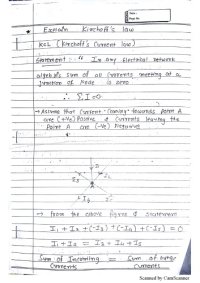 Date :
Page No.
★ Explain Kirchoff's law
KCL (Kirchoff's Current law)
Statement : " In any electrical network
algebraic sum of all currents meeting at a
junction or node is zero
∴ Σ I = 0
→ Assume that current coming towards point A
are (+ve) Positive & currents leaving the
Point A are (-ve) Negative
I1
I2
I3
I4
I5
→ from the above figure & statement
I1 + I2 + (-I3) + (-I4) + (-I5) = 0
I1 + I2 = I3 + I4 + I5
Sum of Incoming = Sum of
Currents Currents
Scanned by CamScanner